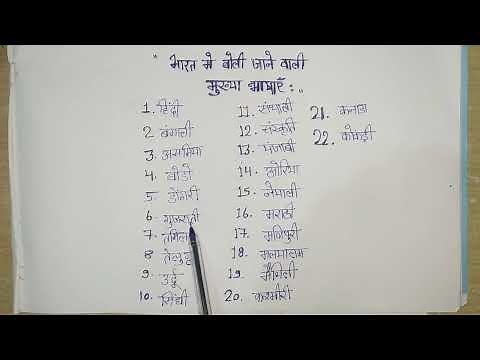 " भारत मे बोली जाने वाली
मुख्या भाषाएँ : "
1. हिंदी
2 बंगाली
3. असमिया
4. बोडो
5. डोंगरी
6. गुजराती
7. तमिल
8 तेलुगू
9. उर्दू
10. सिंधी
11. संथाली
12. संस्कृति
13. पंजाबी
14. ओरिया
15. नेपाली
16. मराठी
17. मणिपुरी
18. मलयालम
19. मैथिली
20. कश्मीरी
21. कन्नड
22. कोकड़ी